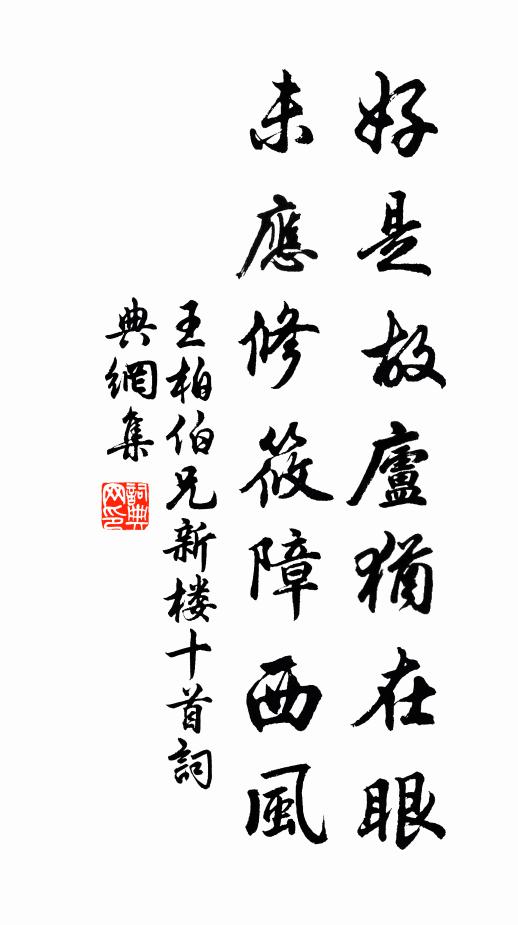 好是故廬猶在眼
未應修筱障西風
王柏伯兄新楼十首詞
典網集
詞典网印